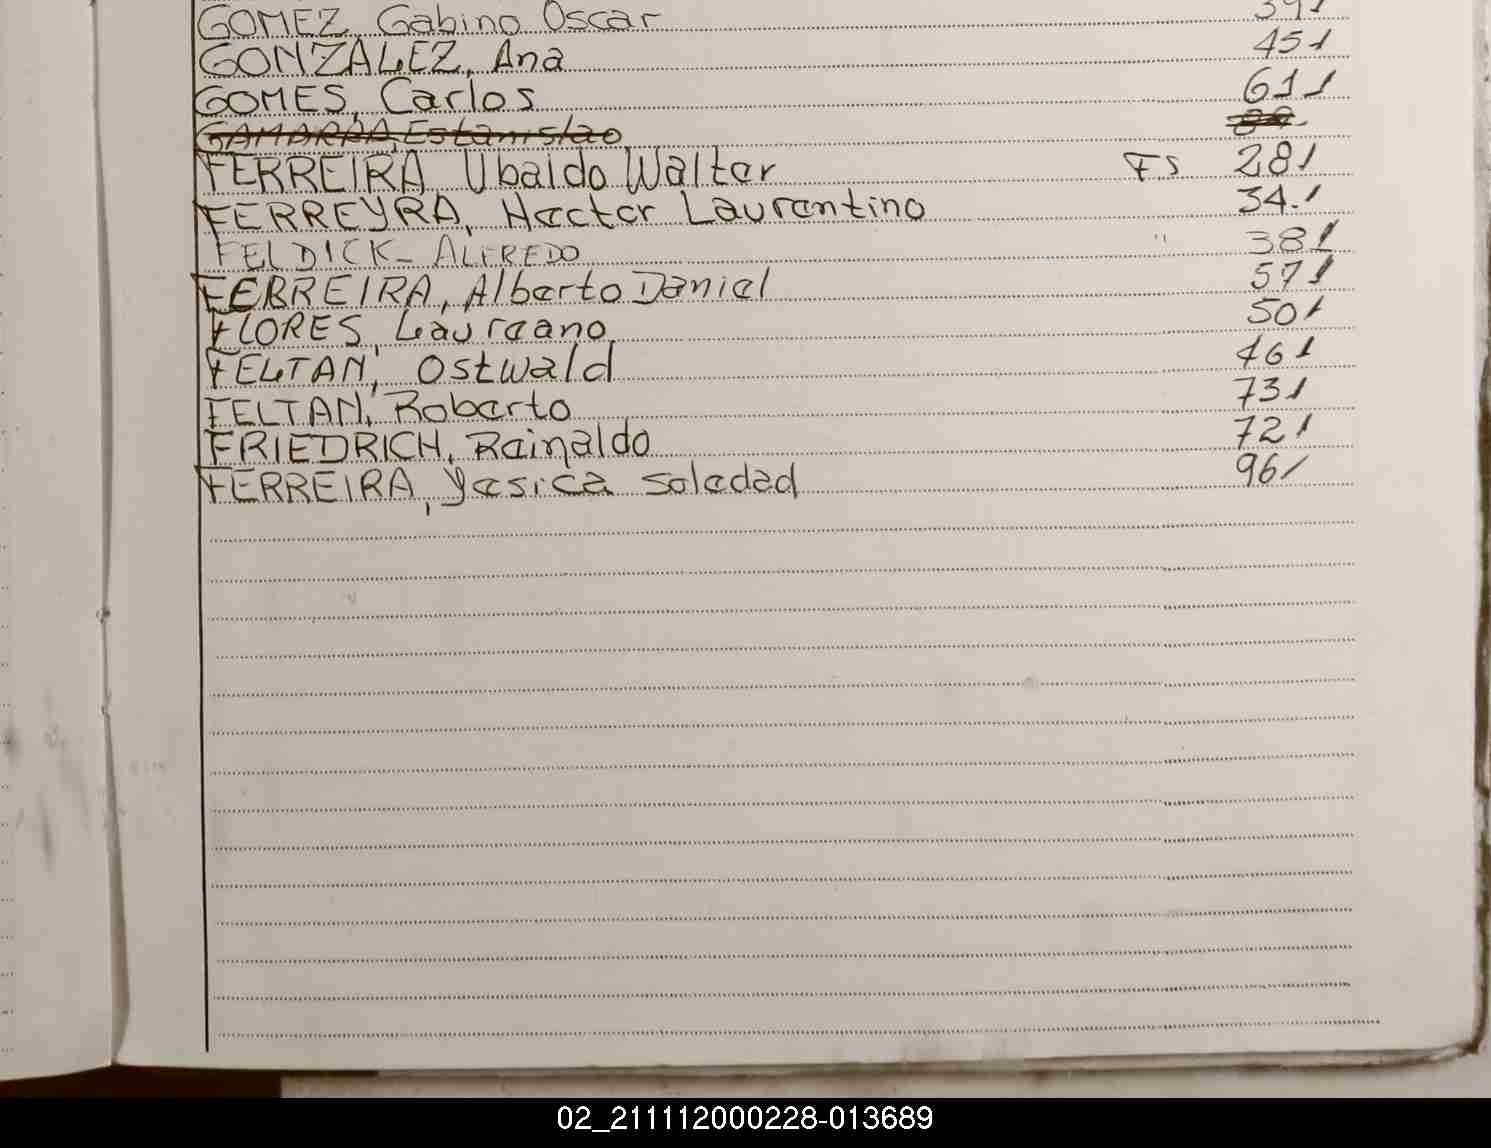 GOMEZ, Gabino Oscar 391
GONZALEZ, Ana 451
GOMES, Carlos 611
GAMARRA, Estanislao
FERREIRA, Ubaldo Walter FS 281
FERREYRA, Hector Laurentino 34.1
FELDICK- ALFREDO " 381
FERREIRA, Alberto Daniel 571
FLORES, Laureano 501
FELTAN, Ostwald 461
FELTAN, Roberto 731
FRIEDRICH, Reinaldo 721
FERREIRA, Yesica Soledad 96/
02_211112000228-013689